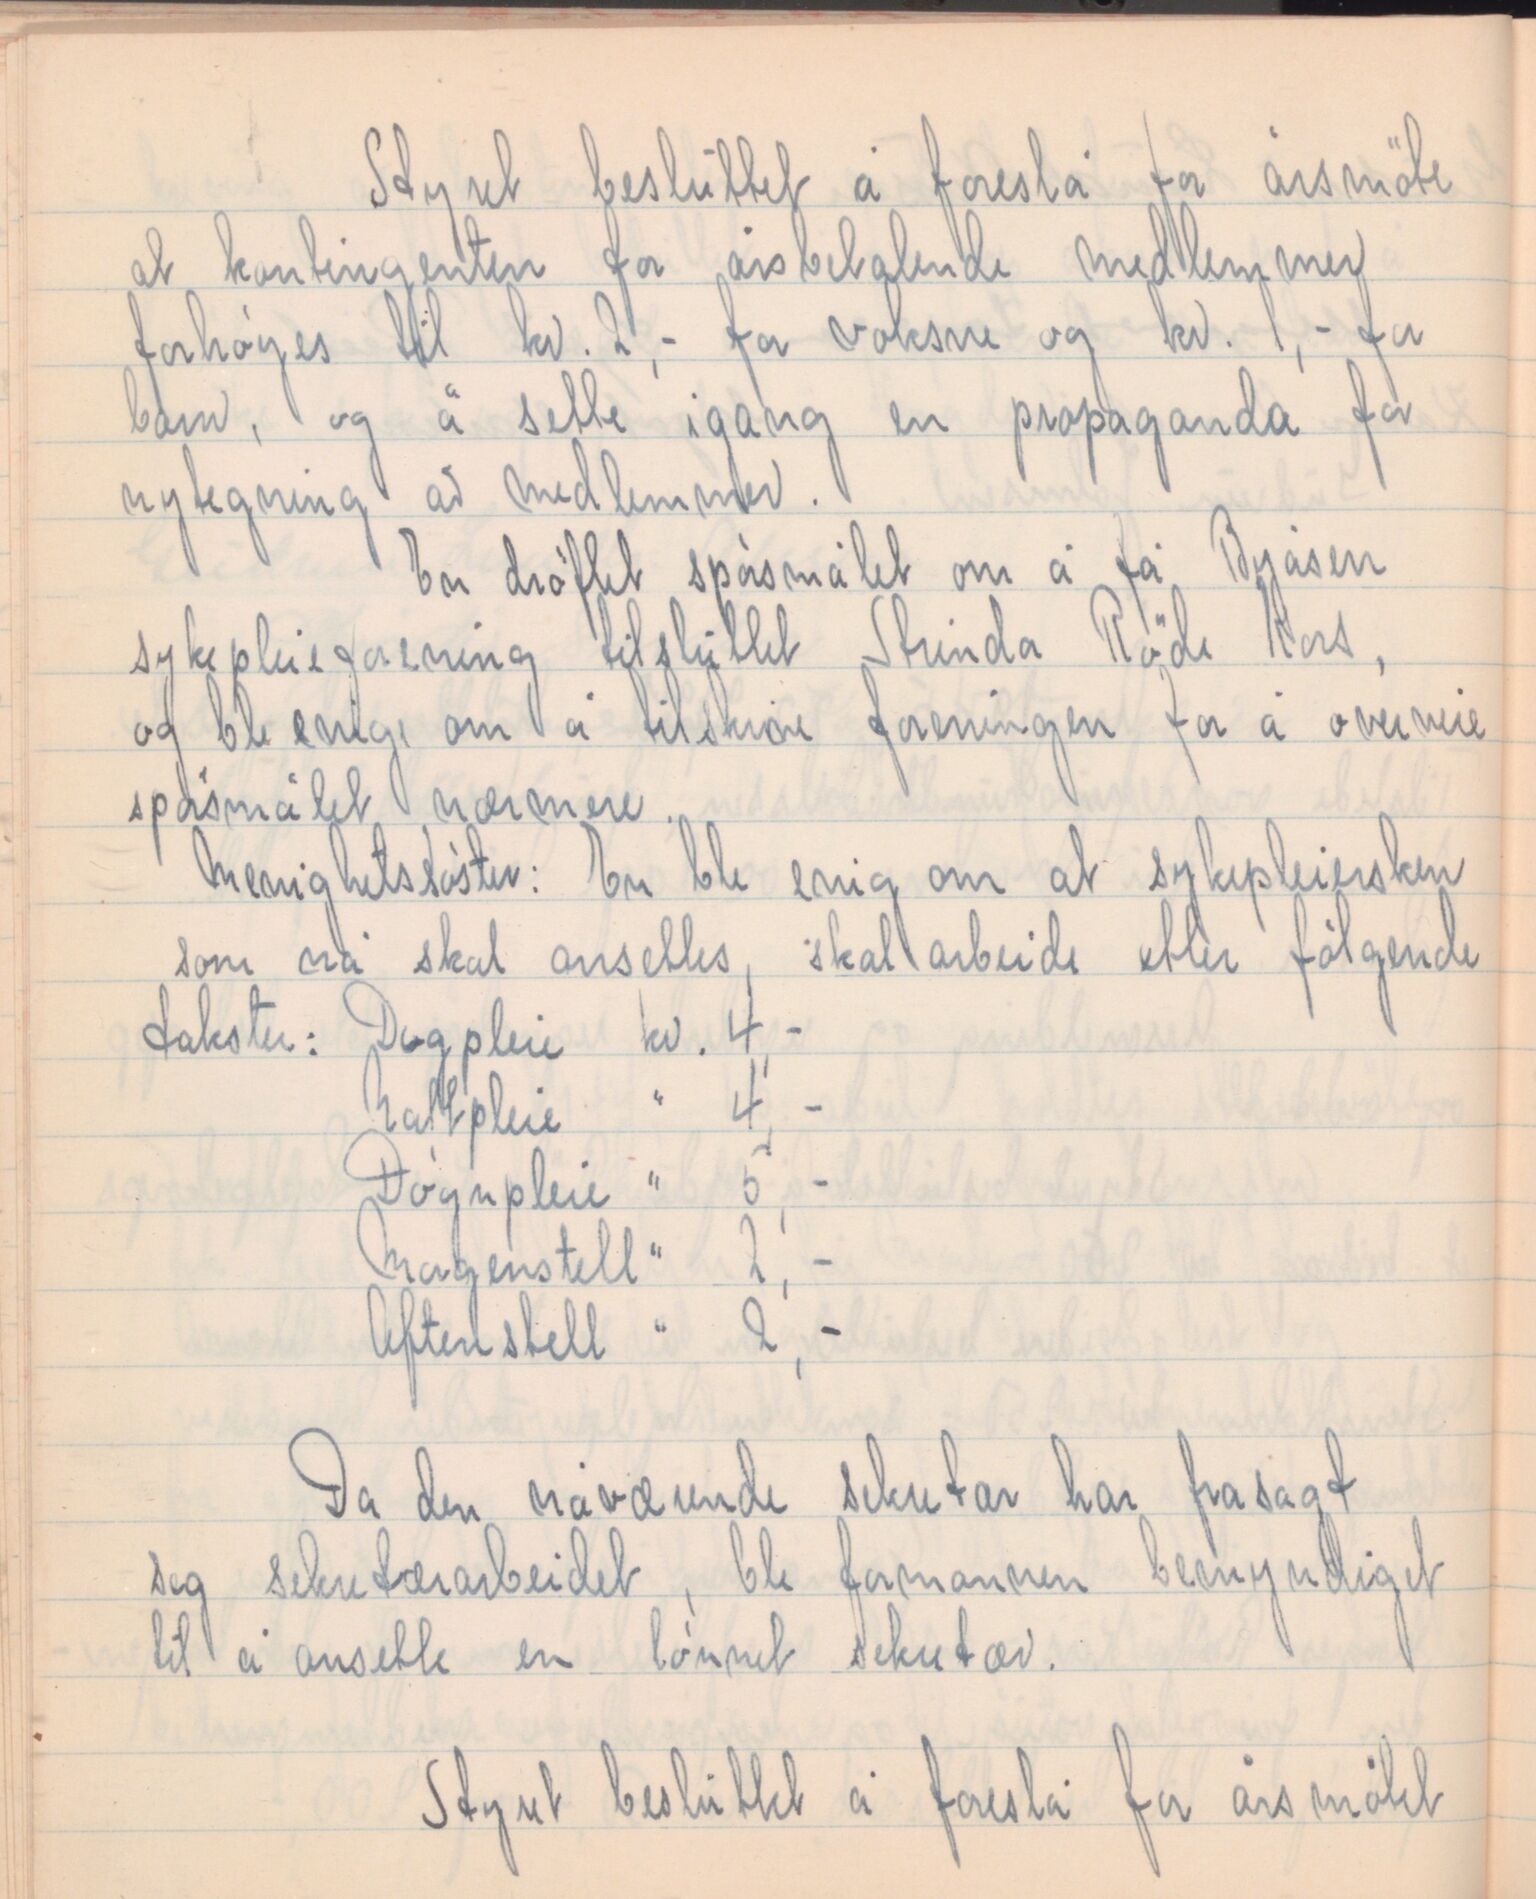 Styret besluttet å foreslå for årsmöte
at kontingenten for årsbetalende medlemmer
forhöyes til kr. 2,- for voksne og kr. 1,- for
barn, og å sette igang en propaganda for
nytegning av medlemmer.
En dröftet spörsmålet om å få Byåsen
sykepleieforening tilsluttet Strinda Röde Kors,
og ble enige om å tilskrive foreningen for å overveie
spörsmålet nærmere.
Menighetssöster: En ble enig om at sykepleiersken
som nå skal ansettes, skal arbeide etter fölgende
takster: Dagpleie kr. 4,-
Nattpleie " 4,-
Dögnpleie " 5,-
Morgenstell " 2,-
Aftenstell " 2,-
Da den nåværende sekretær har frasagt
seg sekretærarbeidet, ble formannen bemyndiget
til å ansette en lönnet sekretær.
Styret besluttet å foreslå for årsmötet